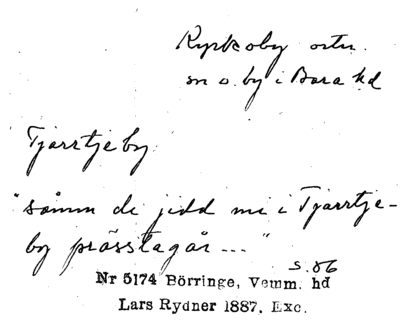 Kyrkoby östra
sn o. by i Bara hd
Tjarrtjeby
"såmm di jidd me i Tjarrtje-
by prässtagår ..."
s. 86
Nr 5174 Börringe, Vemm. hd
Lars Rydner 1887. Exc.